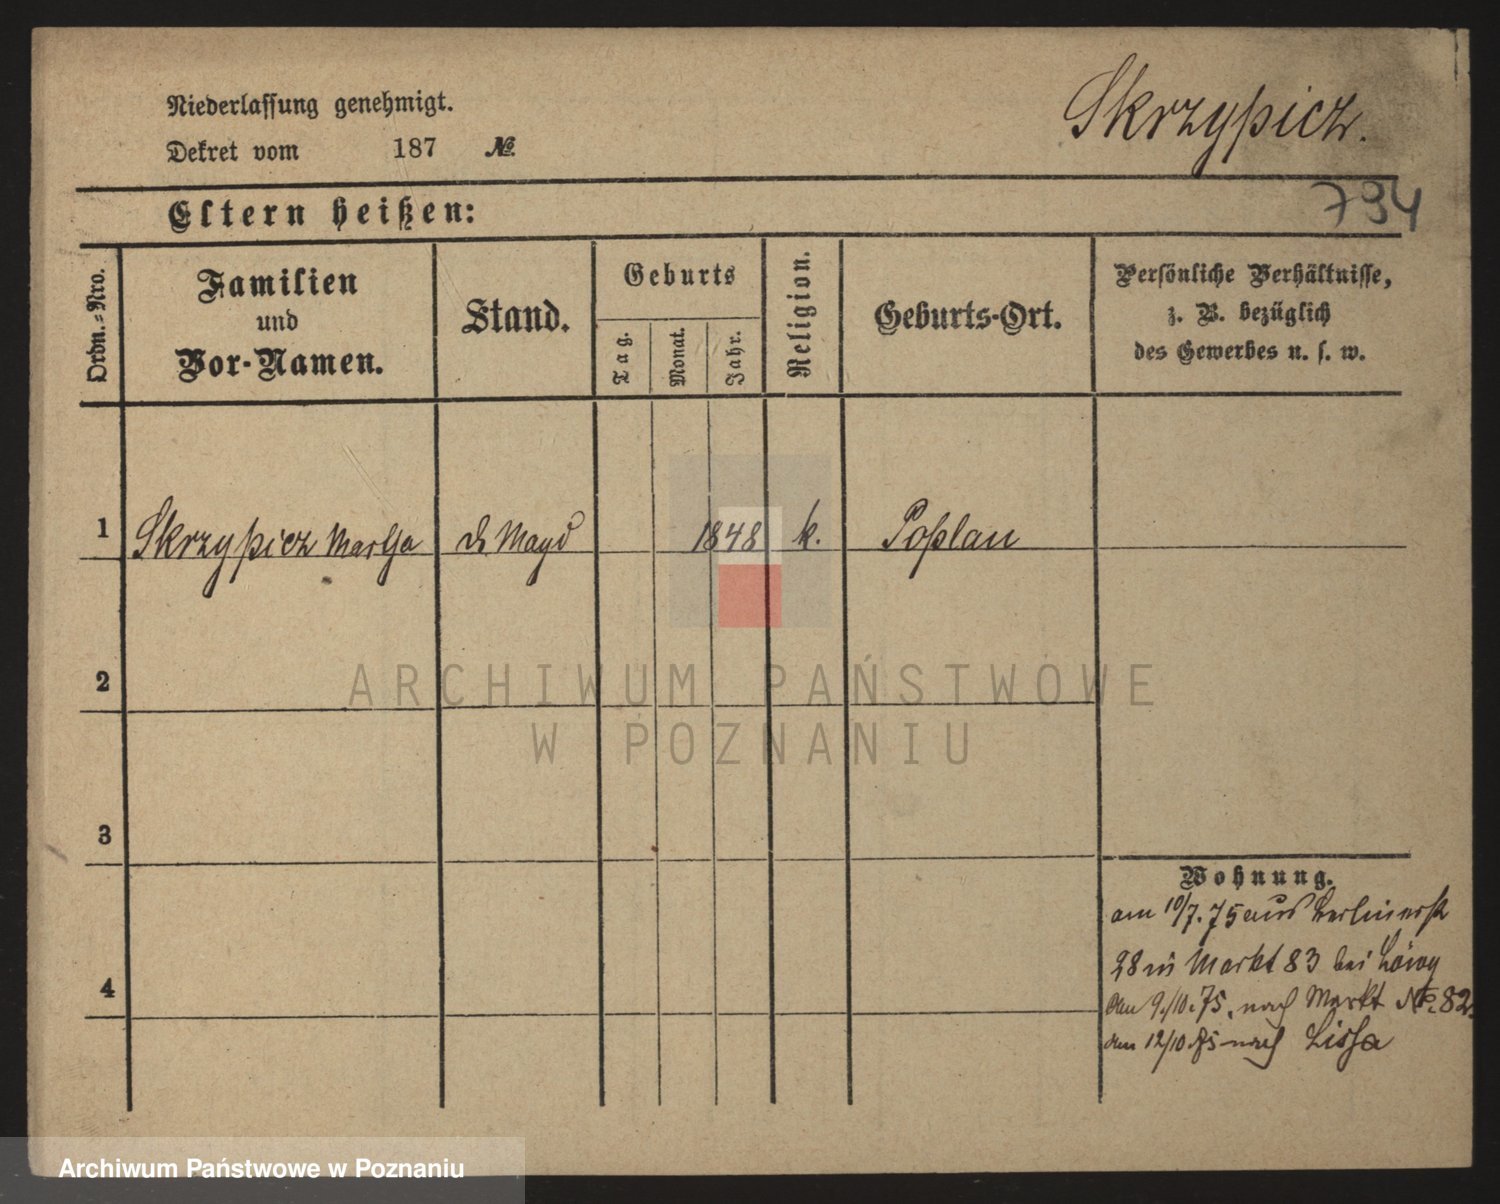 Niederlassung genehmigt.
Dekret vom 187 №.
Skrzypicz.
794
Eltern heißen:
Ordn.-Nro.
Familien
und
Vor-Namen.
Stand.
Geburts
Tag.
Monat.
Jahr.
Religion.
Geburts-Ort.
Persönliche Verhältnisse,
z. B. bezüglich
des Gewerbes u. s. w.
1 Skrzypicz Martha d. Magd 1848 k. Poßlau
2
ARCHIWUM PAŃSTWOWE
W POZNANIU
3
Wohnung.
am 10/7. 75 aus Berlinerst
28 in Markt 83 bei
4
den 9./10. 75. nach Markt №. 82.
den 12/10 75 nach Lissa
Archiwum Państwowe w Poznaniu